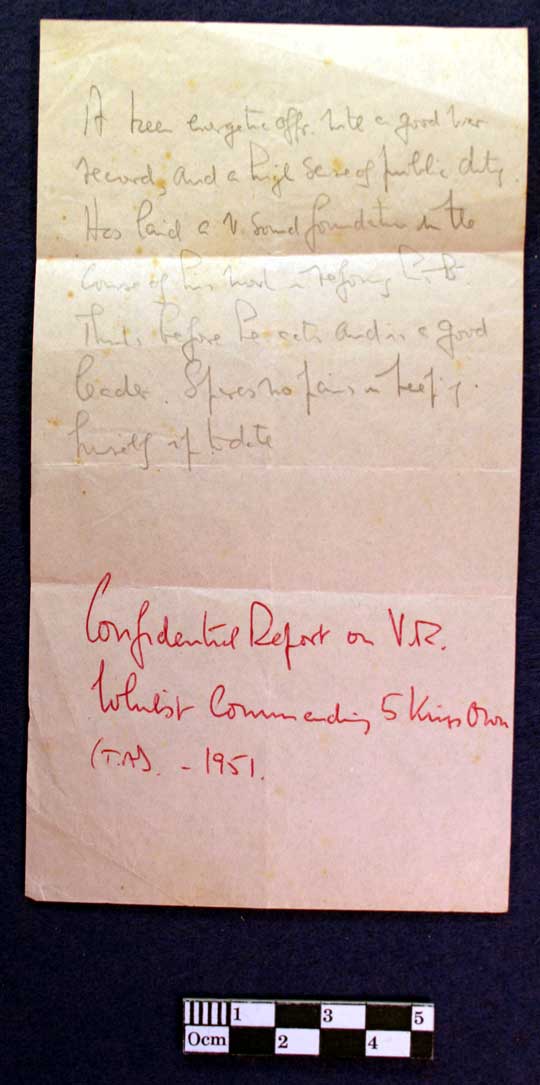 A keen energetic offr. with a good war
record, and a high sense of public duty.
Has laid a v. sound foundation in the
course of his work in reforming his
Thinks before he acts and is a good
leader. Spares no pains in keeping
himself up to date
Confidential Report on V.R.
Whilst Commanding 5 Kings Own
(T.A). - 1951.
0cm 1 2 3 4 5